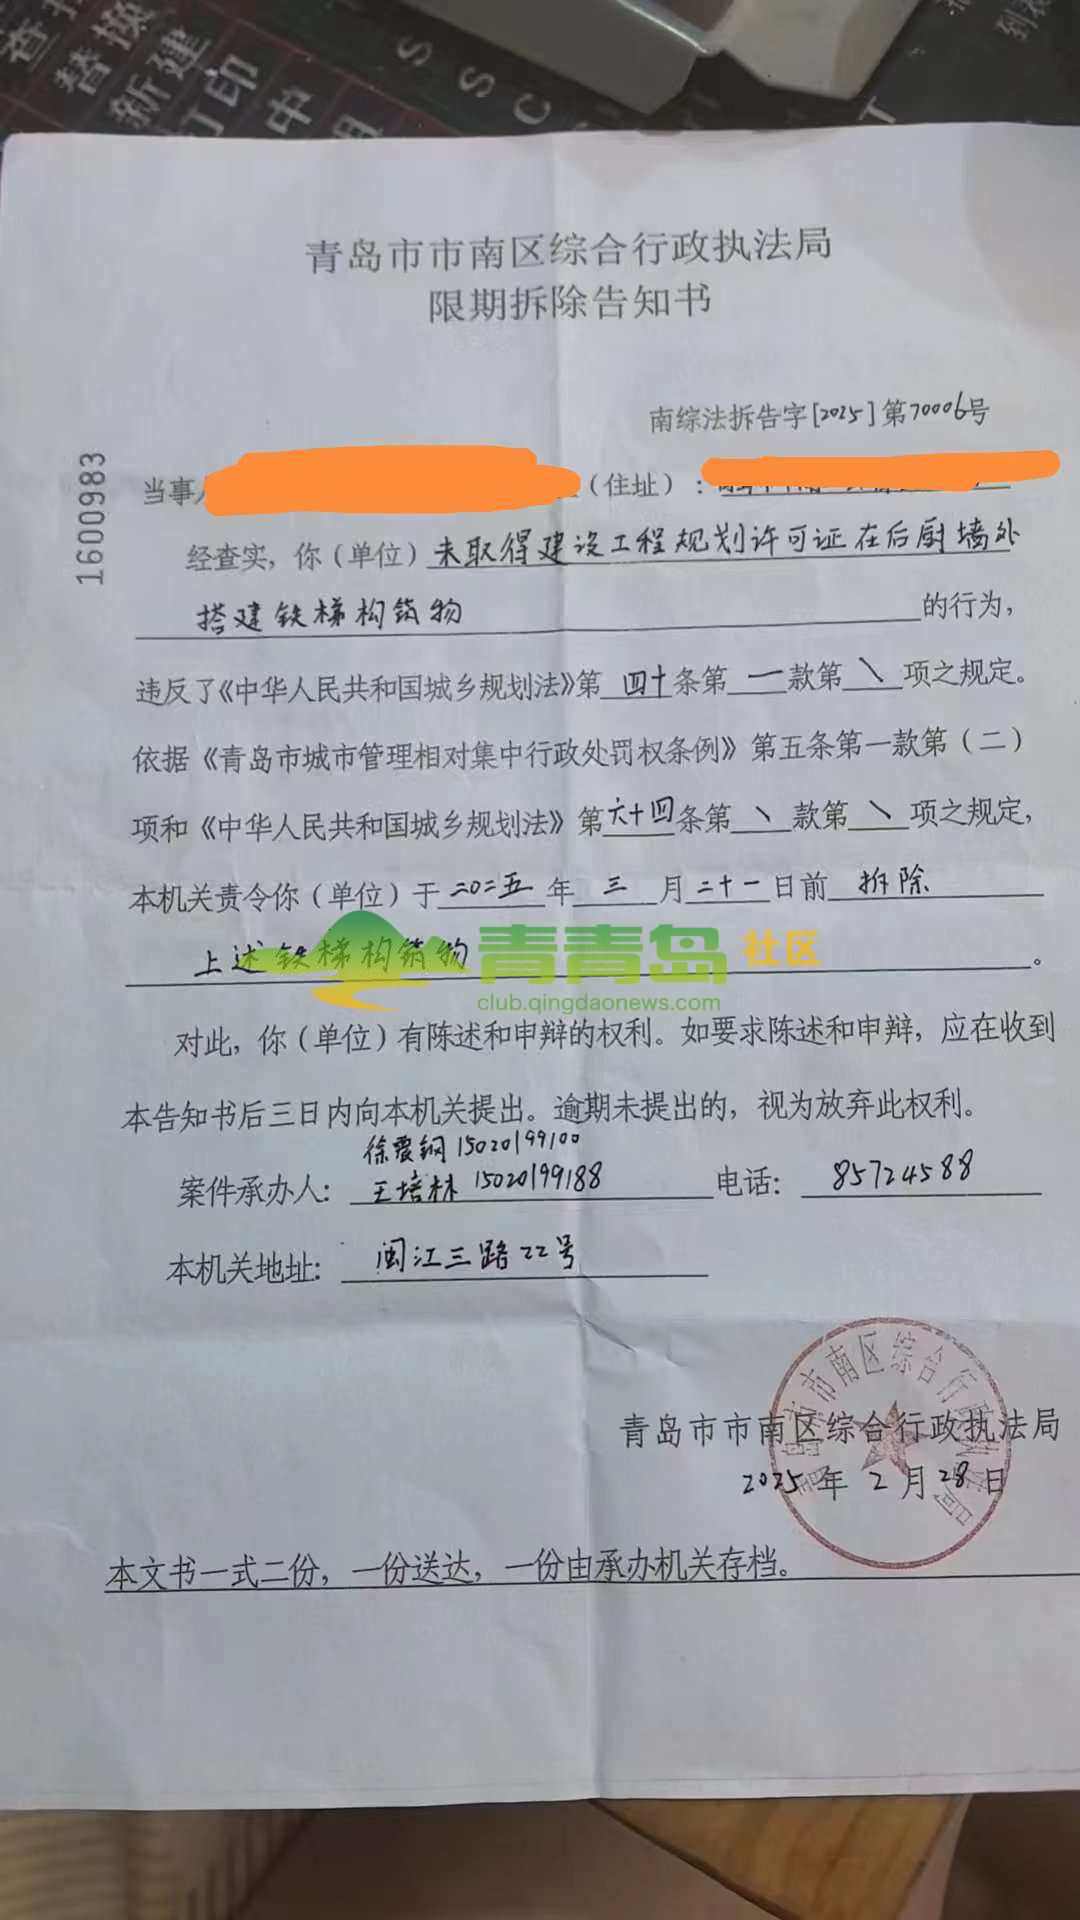 查找
替换
新建
打印
中
S
S
C
T
青岛市市南区综合行政执法局
限期拆除告知书
南综法拆告字[2025]第70006号
1600983
当事人
（住址）：
经查实，你（单位）未取得建设工程规划许可证在后厨墙处
搭建铁梯构筑物的行为，
违反了《中华人民共和国城乡规划法》第四十条第一款第\项之规定。
依据《青岛市城市管理相对集中行政处罚权条例》第五条第一款第（二）
项和《中华人民共和国城乡规划法》第六十四条第\款第\项之规定，
本机关责令你（单位）于二〇二五年三月二十一日前拆除
上述铁梯构筑物。
青青岛社区
club.qingdaonews.com
对此，你（单位）有陈述和申辩的权利。如要求陈述和申辩，应在收到
本告知书后三日内向本机关提出。逾期未提出的，视为放弃此权利。
徐震钢15020199100
案件承办人：王培林15020199188 电话：85724588
本机关地址：闽江三路22号
青岛市市南区综合行政执法局
青岛市市南区综合行政执法局
2025年2月28日
本文书一式二份，一份送达，一份由承办机关存档。